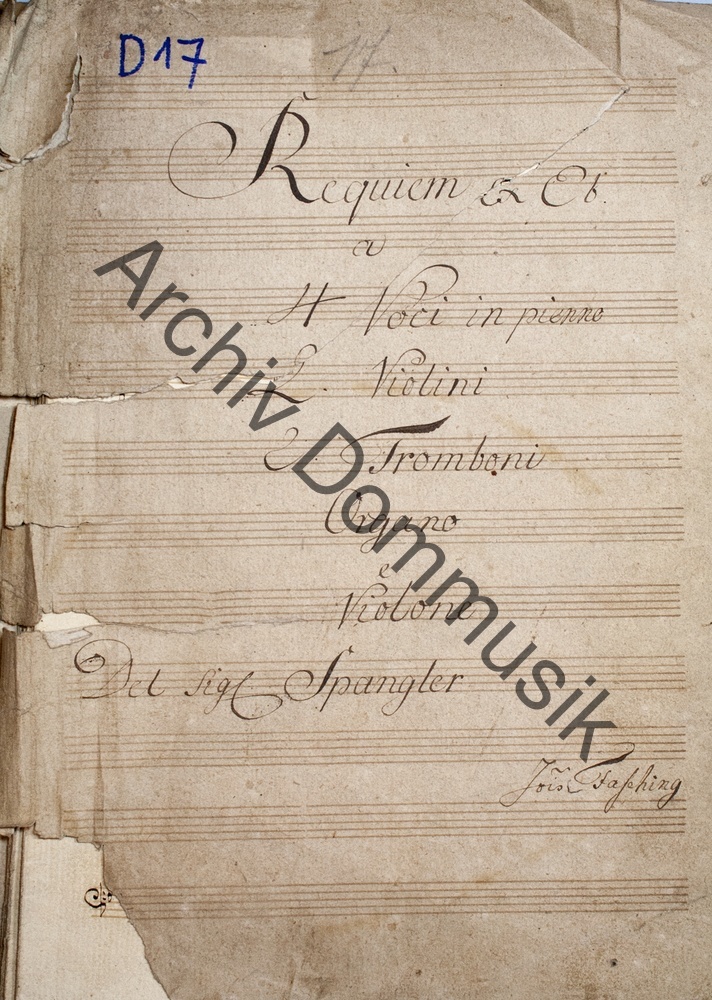 D17
17.
Requiem Ex Eb.
a
4 Voci in pienno
2. Violini
2 Tromboni
Organo
e
Violone
Del Sig Spangler
Jois Fasching
Archiv Dommusik